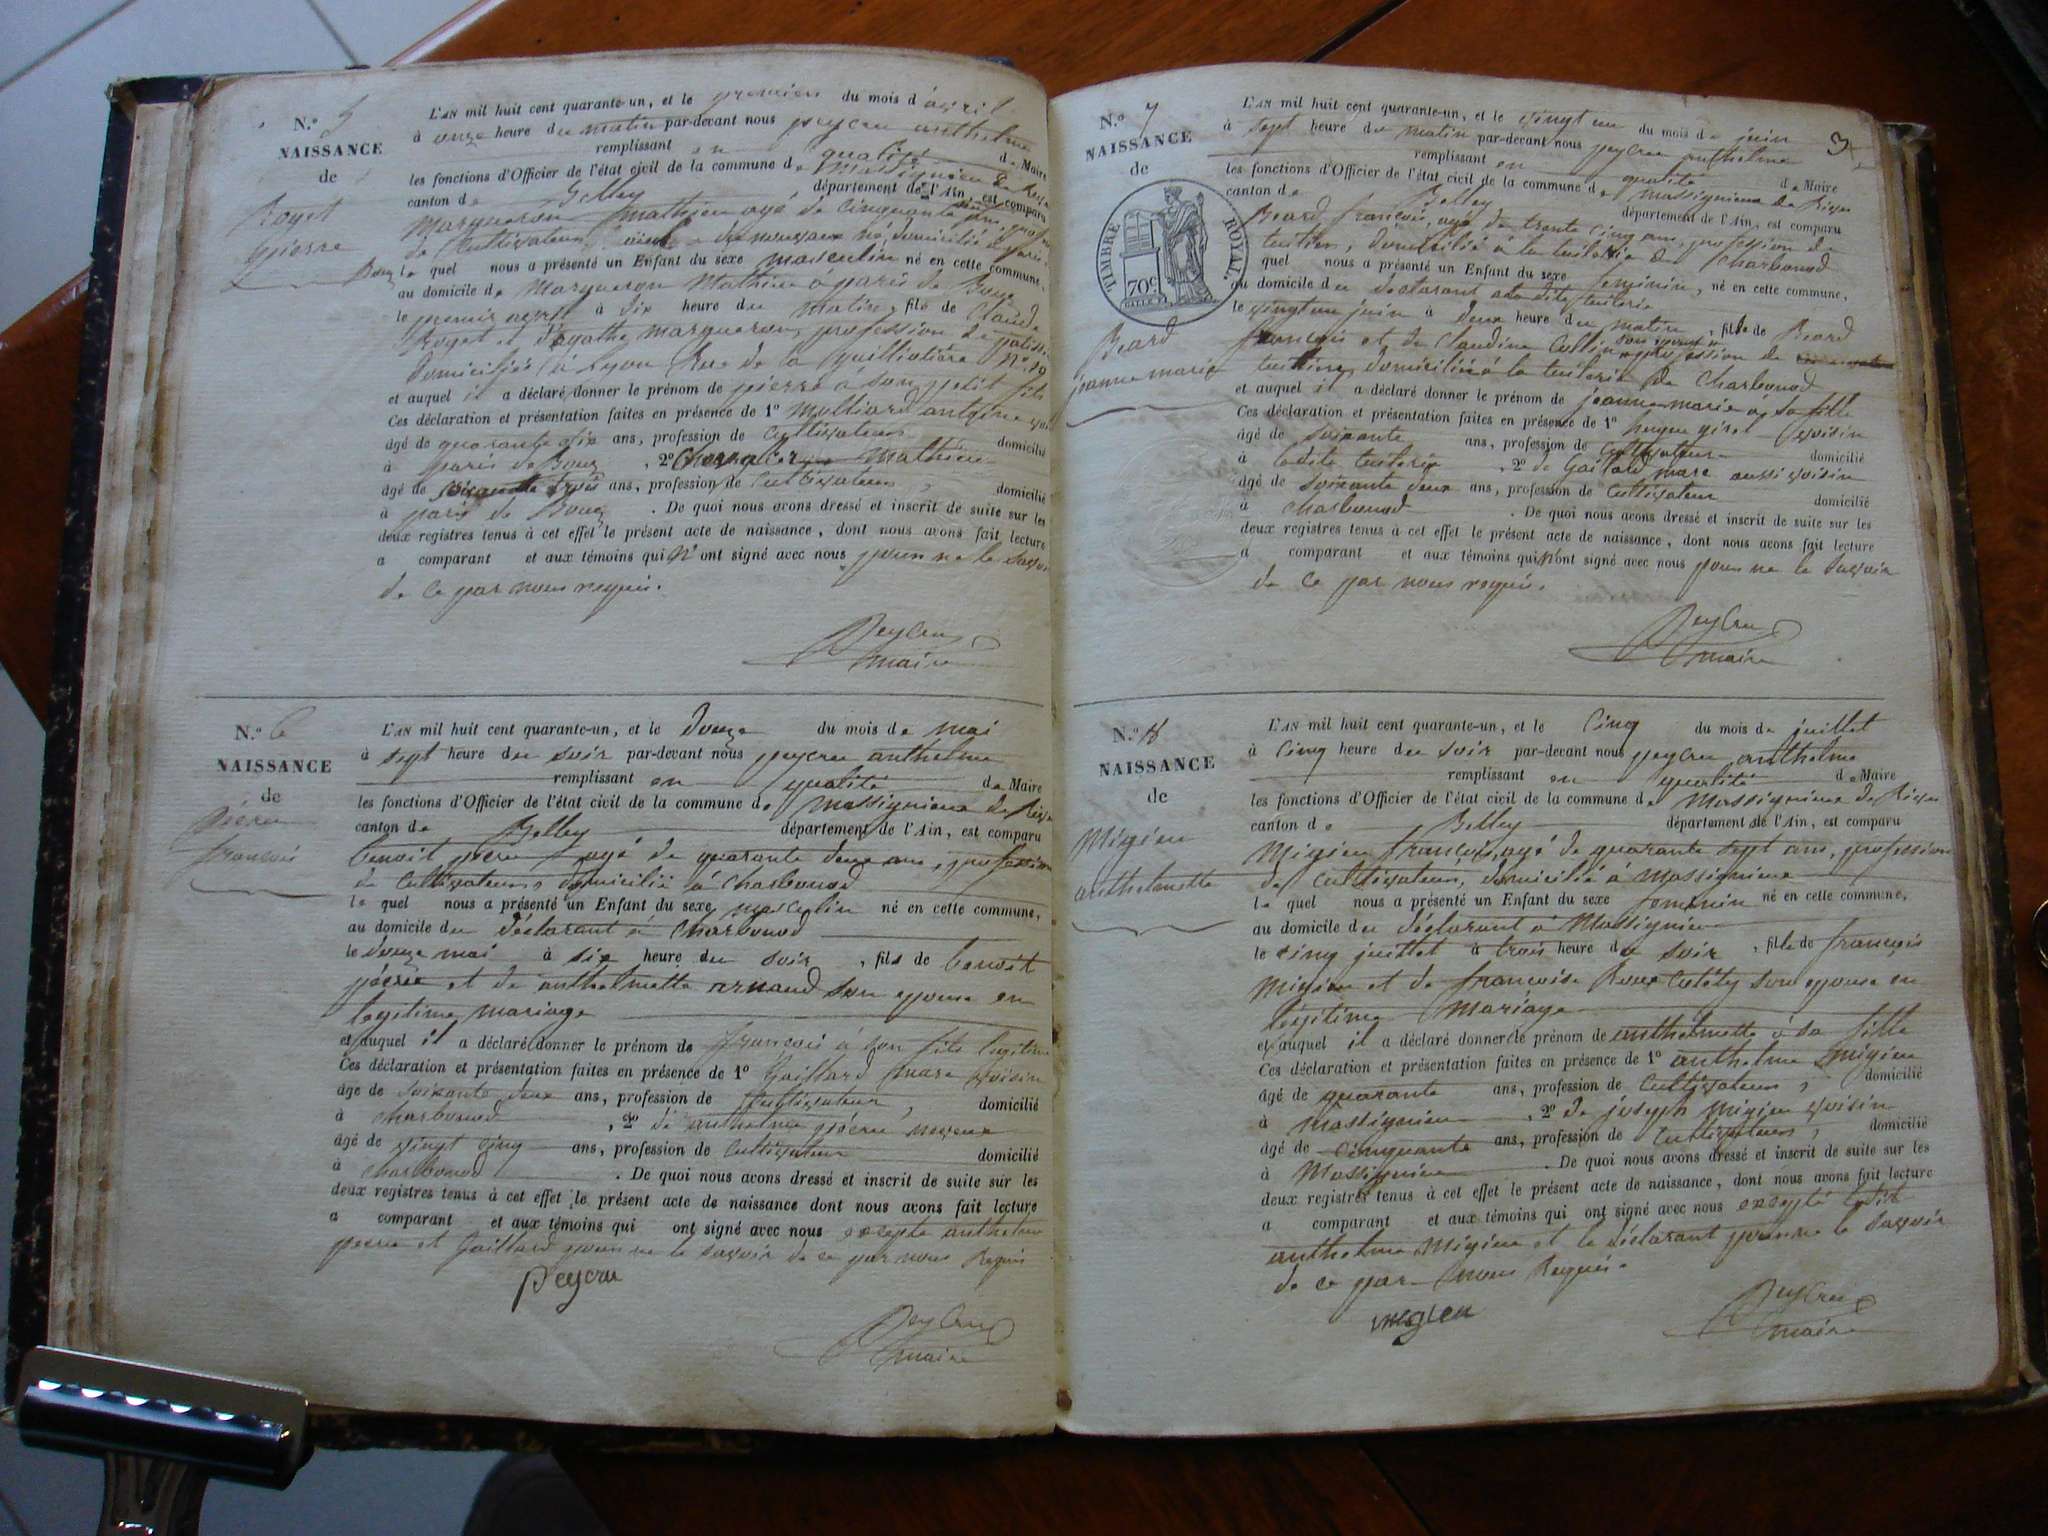 N.º 5
NAISSANCE
de
Roget
pierre
L'AN mil huit cent quarante-un, et le premier du mois d'avril
à onze heure du matin par-devant nous peycru anthelme
remplissant en qualité de Maire
les fonctions d'Officier de l'état civil de la commune de Massignieu de Rives
canton de Belley département de l'Ain, est comparu
Margueron mathieu agé de cinquante
de Cultivateur, domicilié à
le quel nous a présenté un Enfant du sexe masculin né en cette commune,
au domicile de Margueron Mathieu à paris de Bouz
le premier avril à dix heure du matin, fils de Claude
Roget et d'agathe margueron, profession de
domiciliés à Lyon Rue de la Guillotière Nº 19
et auquel il a déclaré donner le prénom de pierre à son petit fils
Ces déclaration et présentation faites en présence de 1º Molliard antoine
âgé de quarante six ans, profession de Cultivateur domicilié
à paris de Bouz, 2º mathieu
âgé de ans, profession de Cultivateur, domicilié
à paris de Bouz. De quoi nous avons dressé et inscrit de suite sur les
deux registres tenus à cet effet le présent acte de naissance, dont nous avons fait lecture
a comparant et aux témoins qui N'ont signé avec nous pour ne le savoir
de ce par nous requis.
Peycru
maire
N.º 6
NAISSANCE
de
pécru
francois
L'AN mil huit cent quarante-un, et le Douze du mois de mai
à sept heure du soir par-devant nous peycru anthelme
remplissant en qualité de Maire
les fonctions d'Officier de l'état civil de la commune de massignieu de Rives
canton de Belley département de l'Ain, est comparu
benoit pécru agé de quarante deux ans, profession
de Cultivateur, domicilié à Charbonod
le quel nous a présenté un Enfant du sexe masculin né en cette commune,
au domicile du déclarant à Charbonod
le douze mai à six heure du soir, fils de benoit
pécru et de anthelmette arnaud son epouse en
legitime mariage
et auquel il a déclaré donner le prénom de francois à son fils legitime
Ces déclaration et présentation faites en présence de 1º Gaillard marc voisin
âgé de soixante deux ans, profession de Cultivateur, domicilié
à charbonod, 2º de anthelme pécru neveu
âgé de vingt cinq ans, profession de Cultivateur domicilié
à charbonod. De quoi nous avons dressé et inscrit de suite sur les
deux registres tenus à cet effet le présent acte de naissance dont nous avons fait lecture
a comparant et aux témoins qui ont signé avec nous excepté anthelme
pécru et Gaillard pour ne le savoir de ce par nous Requis
peycru
Peycru
maire
3
N.º 7
NAISSANCE
de
TIMBRE ROYAL.
70c
Beard
jeanne marie
L'AN mil huit cent quarante-un, et le vingt un du mois de juin
à sept heure du matin par-devant nous peycru anthelme
remplissant en qualité de Maire
les fonctions d'Officier de l'état civil de la commune de massignieu de Rives
canton de Belley département de l'Ain, est comparu
Beard françois, agé de trente cinq ans, profession de
tuilier, domicilié à la tuilerie de Charbonod
quel nous a présenté un Enfant du sexe feminin, né en cette commune,
au domicile du declarant a la dite tuilerie
le vingt un juin à deux heure du matin, fille de Beard
françois et de Claudine Cullin son epouse profession de
tuilière, domiciliés à la tuilerie de Charbonod
et auquel il a déclaré donner le prénom de jeanne marie à sa fille
Ces déclaration et présentation faites en présence de 1º voisin
âgé de soixante ans, profession de Cultivateur domicilié
à ladite tuilerie, 2º de Gaillard marc aussi voisin
âgé de soixante deux ans, profession de Cultivateur domicilié
à charbonod. De quoi nous avons dressé et inscrit de suite sur les
deux registres tenus à cet effet le présent acte de naissance, dont nous avons fait lecture
a comparant et aux témoins qui N'ont signé avec nous pour ne le savoir
de ce par nous requis.
Peycru
maire
N.º 8
NAISSANCE
de
Migieu
anthelmette
L'AN mil huit cent quarante-un, et le Cinq du mois de juillet
à Cinq heure du soir par-devant nous peycru anthelme
remplissant en qualité de Maire
les fonctions d'Officier de l'état civil de la commune de Massignieu de Rives
canton de Belley département de l'Ain, est comparu
Migieu françois, agé de quarante sept ans, profession
de Cultivateur, domicilié à Massignieu
le quel nous a présenté un Enfant du sexe feminin né en cette commune,
au domicile du déclarant à Massignieu
le cinq juillet à trois heure du soir, fille de françois
Migieu et de francoise Roux son epouse en
légitime Mariage
et auquel il a déclaré donner le prénom de anthelmette à sa fille
Ces déclaration et présentation faites en présence de 1º anthelme migieu
âgé de quarante ans, profession de Cultivateur, domicilié
à massignieu, 2º de joseph migieu voisin
âgé de cinquante ans, profession de Cultivateur, domicilié
à Massignieu. De quoi nous avons dressé et inscrit de suite sur les
deux registres tenus à cet effet le présent acte de naissance, dont nous avons fait lecture
a comparant et aux témoins qui ont signé avec nous excepté ledit
anthelme Migieu et le déclarant pour ne le savoir
de ce par nous Requis.
migieu
Peycru
maire